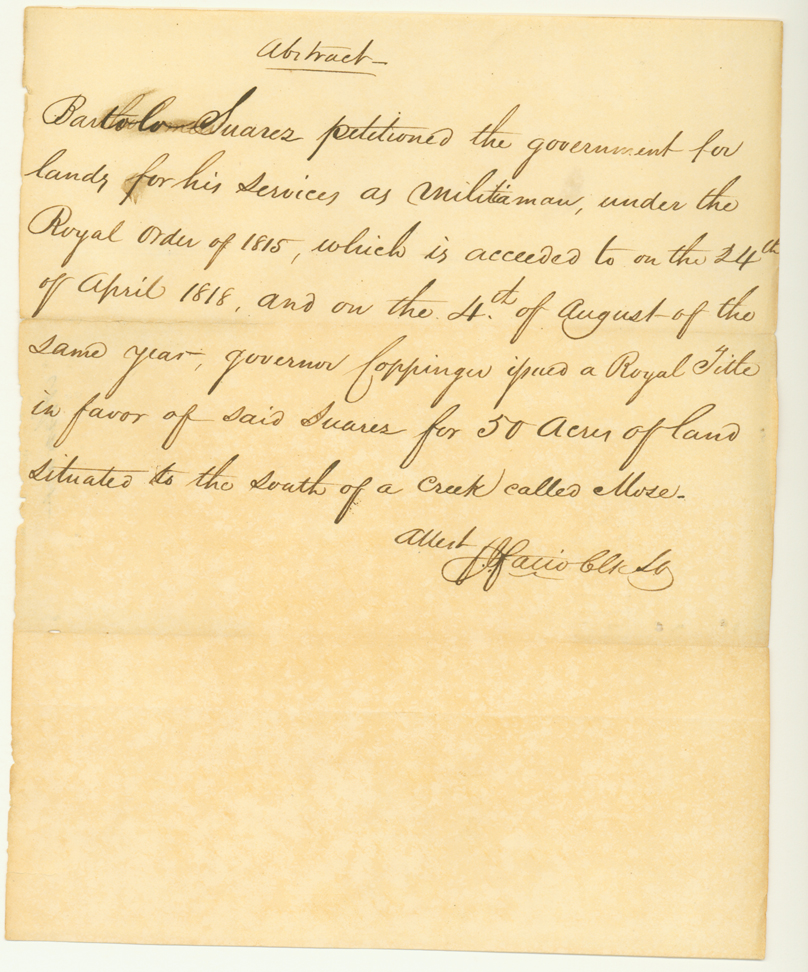 Abstract_
Bartholo Suarez petitioned the government for
lands for his services as militiaman, under the
Royal Order of 1815, which is acceeded to on the 24th
of April 1818, and on the 4.th of August of the
same year, governor Coppinger issued a Royal Title
in favor of said Suarez for 50 Acres of land
situated to the south of a Creek called Mose_
Attest